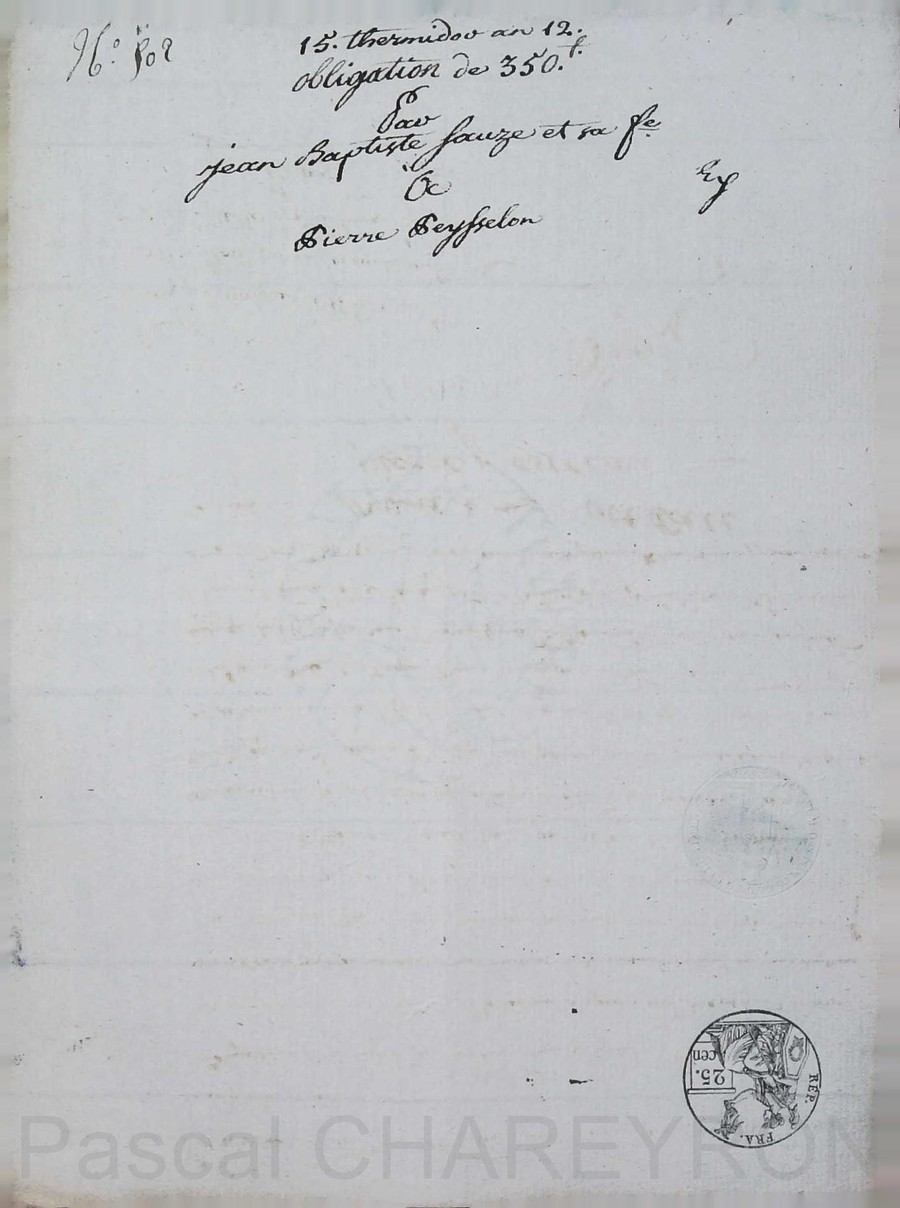 N.º 502
15. thermidor an 12.
obligation de 350.f.
Par
jean Baptiste sauze et sa fe
à
Pierre Peysselon
25.
cen
REP.
FRA.
Pascal CHAREYRON